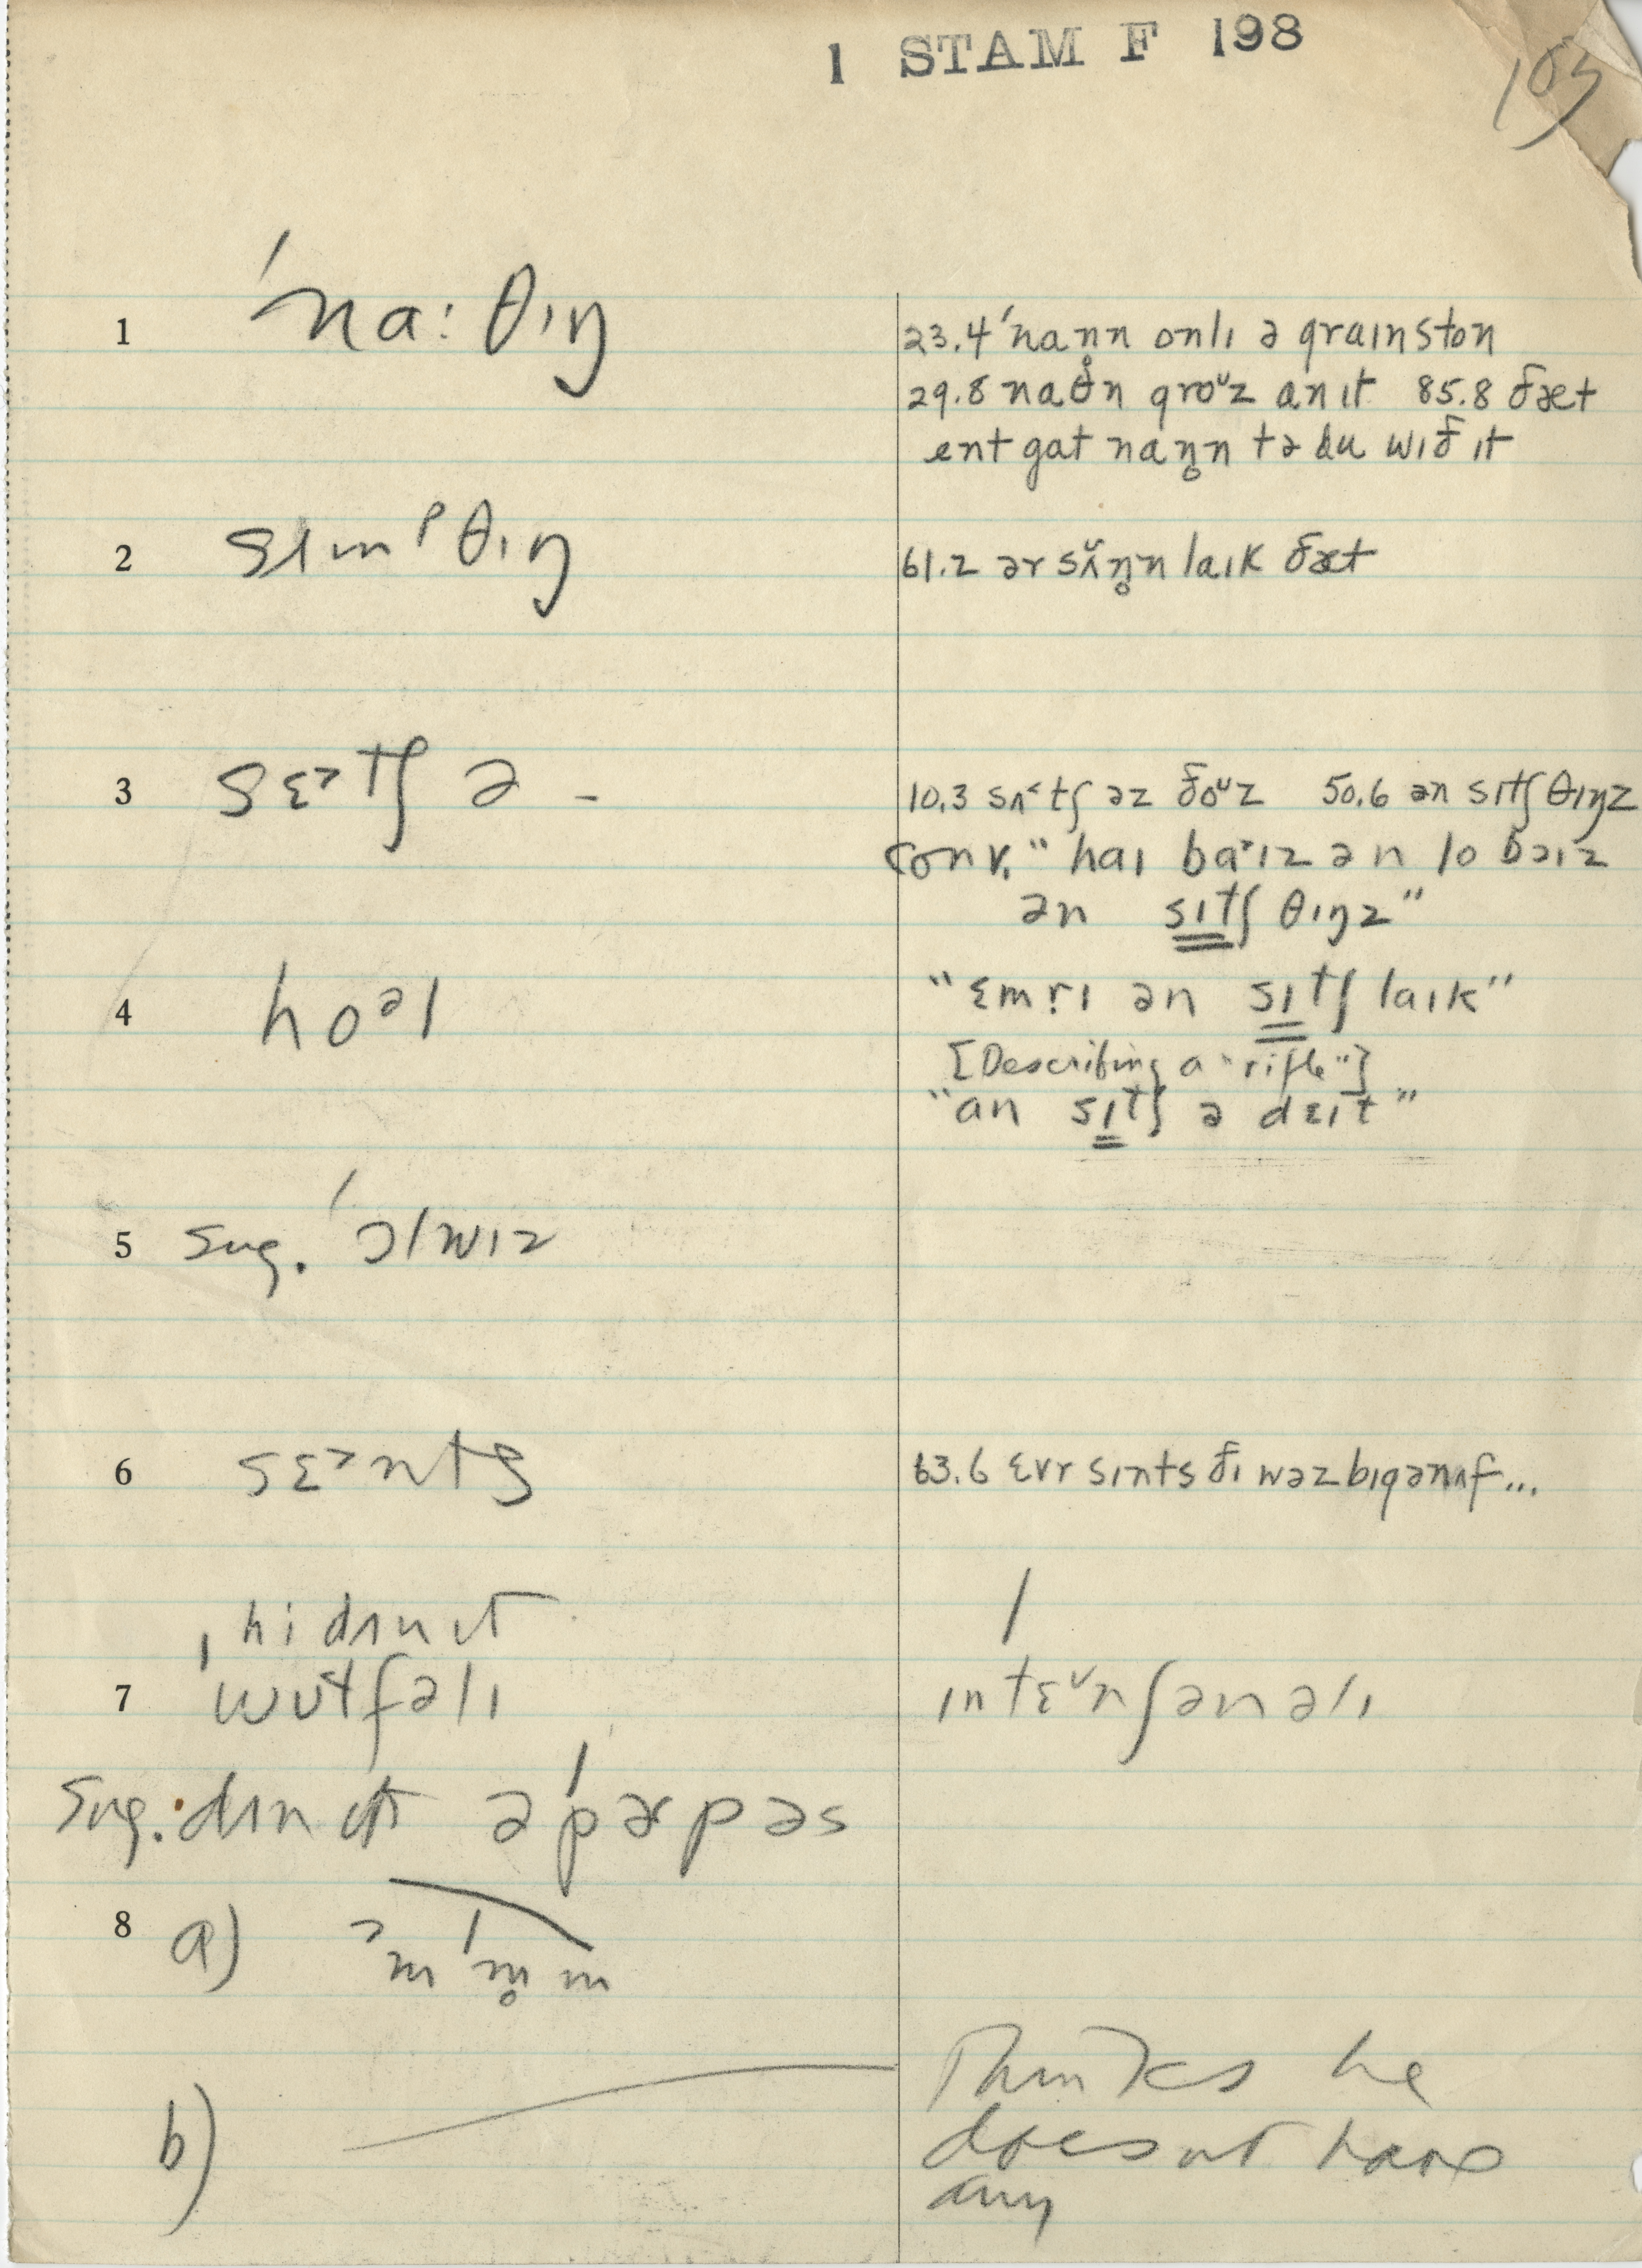 1 STAM F 198
105
1 ˈna:θɪŋ
23.4 ˈnaņn onlɪ ə graɪnston
29.8 naθ̥n groᵘz an ɪt 85.8 ðæt
ent gat naŋ̥n tə du wɪð ɪt
2 sɪmᵖθɪŋ
61.2 ər sʌ̌ŋ̥n laɪk ðæt
3 sɛ˃tʃ ə –
10.3 sʌ˂tʃ əz ðoᵘz 50.6 ən sɪtʃ θɪŋz
conv. "haɪ ba˃ɪz ən lo bəɪz
ən sɪtʃ θɪŋz"
4 hoᵊl
"ɛmrɪ ən sɪtʃ laɪk"
[Describing a "rifle"]
"an sɪtʃ ə dɛɪt"
5 sug. ˈɔlwɪz
6 sɛ˃nts
63.6 ɛvr sɪnts ðɪ wəz bɪgənʌf...
hi dʌn ɪt
7 ˈwʊtfəlɪ
ɪntɛˇnʃənəlɪ
Sug: dʌn ɪt ə ˈpərpəs
8 a) ˃m ˈm̥m
b)
Thinks he
doesnt have
any